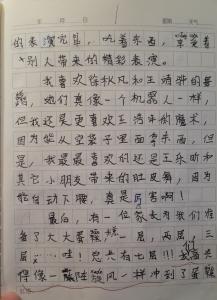 年 月 日 星期 天气
的表演完星，吃着东西，享受着
别人带来的精彩表演。
我喜欢徐秋凡和王清的舞
蹈，她们真像一个机器人一样，
但我还是更喜欢王清的魔术，
因为能从空袋子里面拿东西，但
是，我最最喜欢的还是王乐昕和
其它小朋友带来的肚皮舞，因为
能自动下腰，真是厉害啊！
最后，有一位家长为我们准
备了大大蛋糕，一层，两层，三
层，哇！总共有七层！！！我
像一阵旋风一样冲到了蛋糕